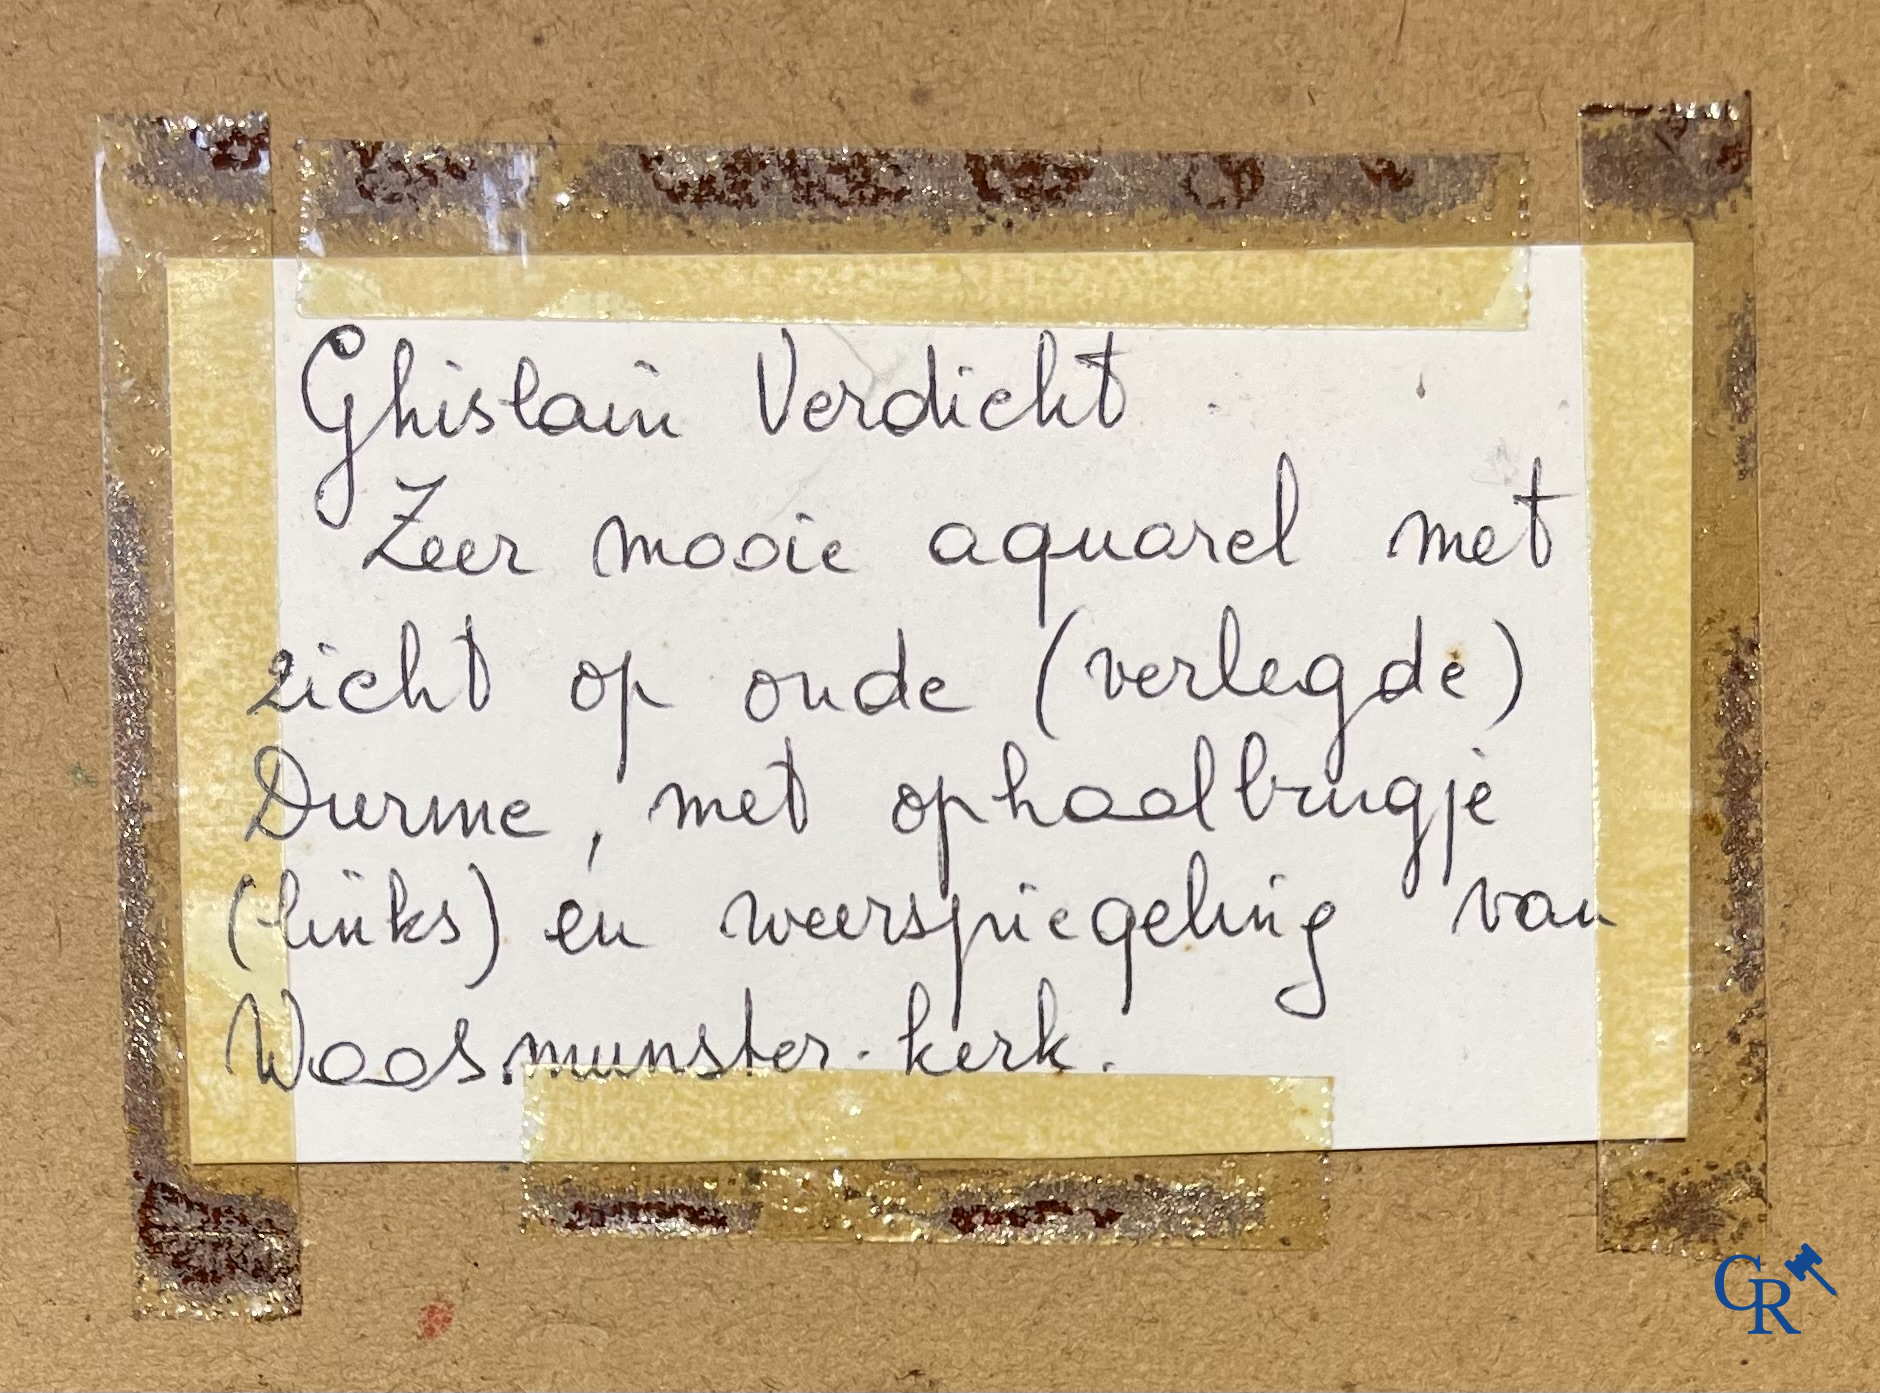 Ghislain Verdicht
Zeer mooie aquarel met
zicht op oude (verlegde)
Durme, met ophaalbrugje
(links) en weerspiegeling van
Waasmunster-kerk.
CR